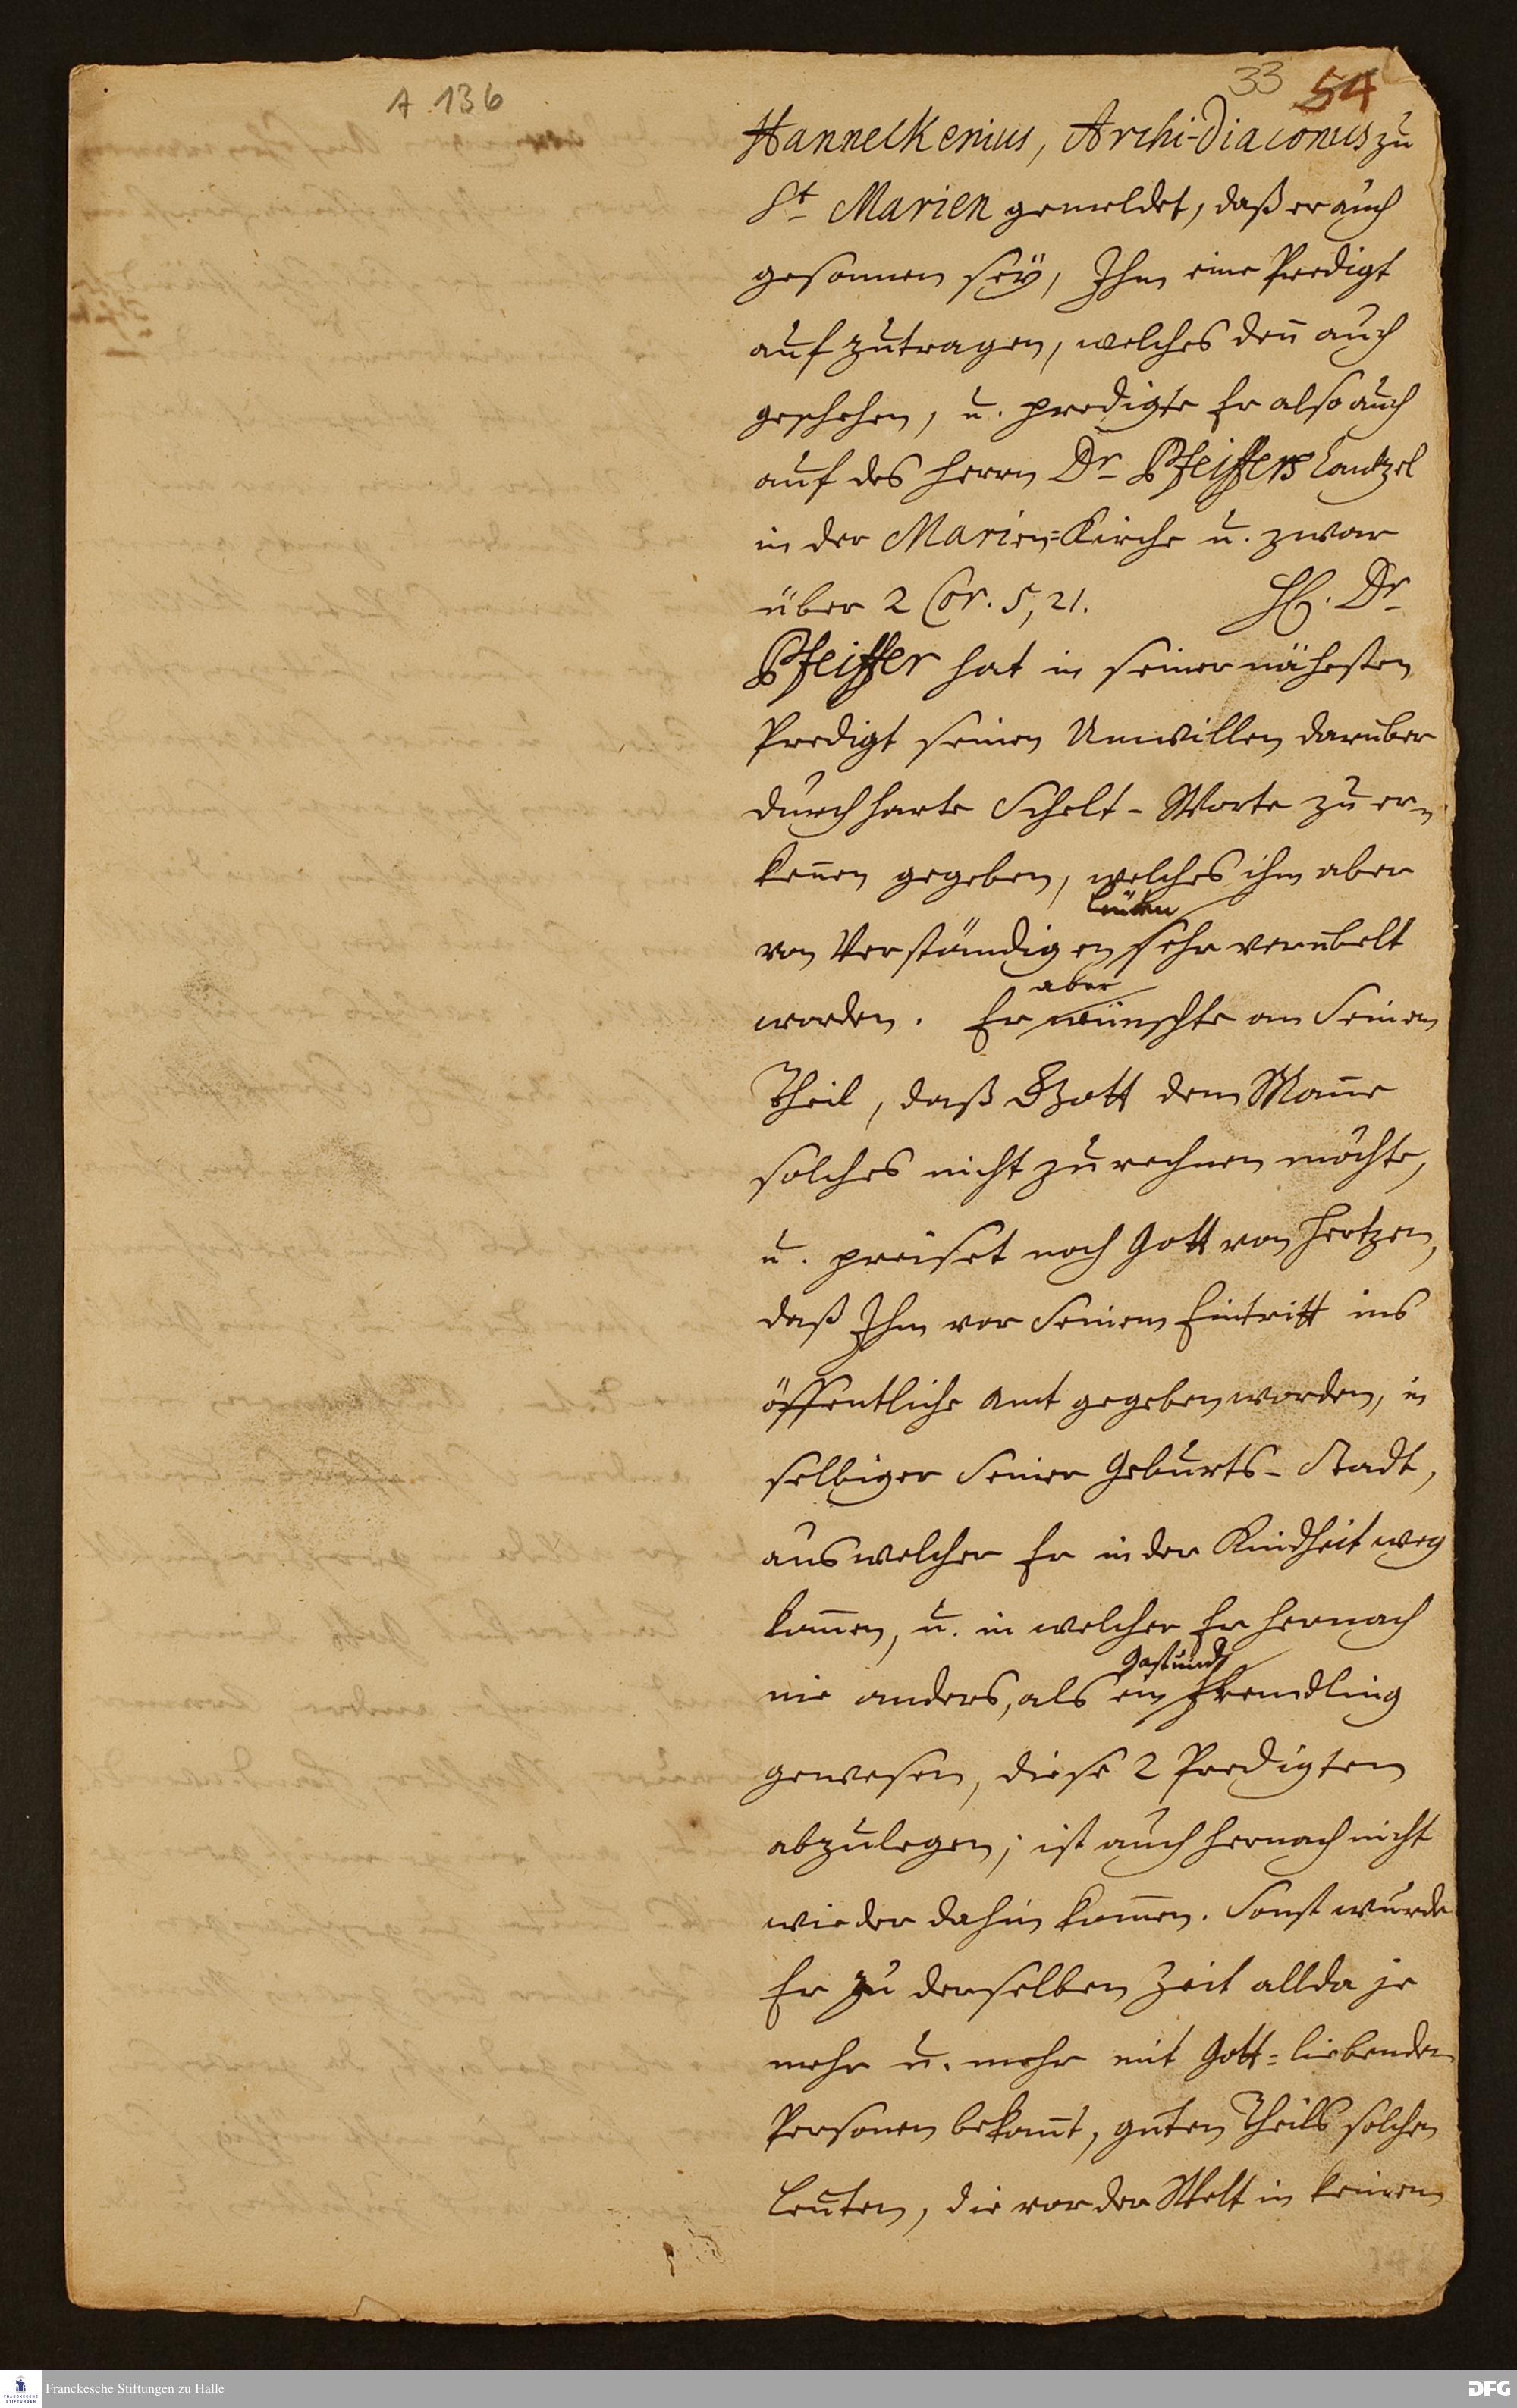 A 136
33 54
Hanneckenius, Archi-Diaconus zu
St Marien gemeldet, daß er auch
gesonnen seÿ, Ihm eine Predigt
aufzutragen, welches deñ auch
geschehen, u. predigte Er also auch
auf des Herrn Dr Pfeiffers Cantzel
in der Marien-Kirche u. zwar
über 2 Cor. 5, 21. H. Dr
Pfeiffer hat in seiner nähesten
Predigt seinen Unwillen darüber
durch harte Schelt-Worte zu er-
keñen gegeben, welches ihm aber
leuten
von Verständigen sehr verübelt
aber
worden. Er wünschte an Seinem
Theil, daß Gott dem Mañe
solches nicht zurechnen möchte,
u. preiset noch Gott von Hertzen,
daß Ihm vor Seinem Eintritt ins
öffentliche Amt gegeben worden, in
selbiger Seiner Geburts-Stadt,
aus welcher Er in der Kindheit weg
kom̃en, u. in welcher Er hernach
Gast und
nie anders, als ein Fremdling
gewesen, diese 2 Predigten
abzulegen; ist auch hernach nicht
wieder dahin kom̃en. Sonst wurde
Er zu derselben Zeit allda je
mehr u. mehr mit Gott-liebenden
Personen bekañt, guten Theils solchen
Leuten, die vor der Welt in keinem
Franckesche Stiftungen zu Halle
DFG